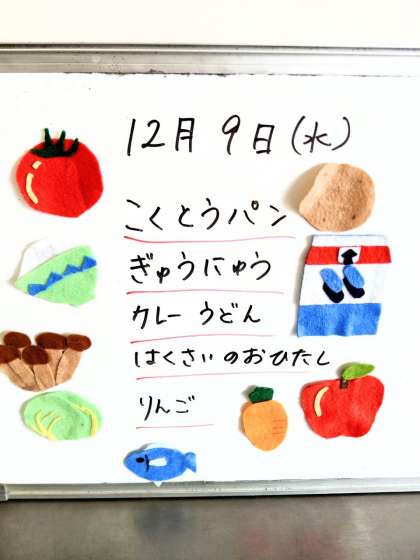 12月 9日(水)
こくとうパン
ぎゅうにゅう
カレーうどん
はくさいのおひたし
りんご